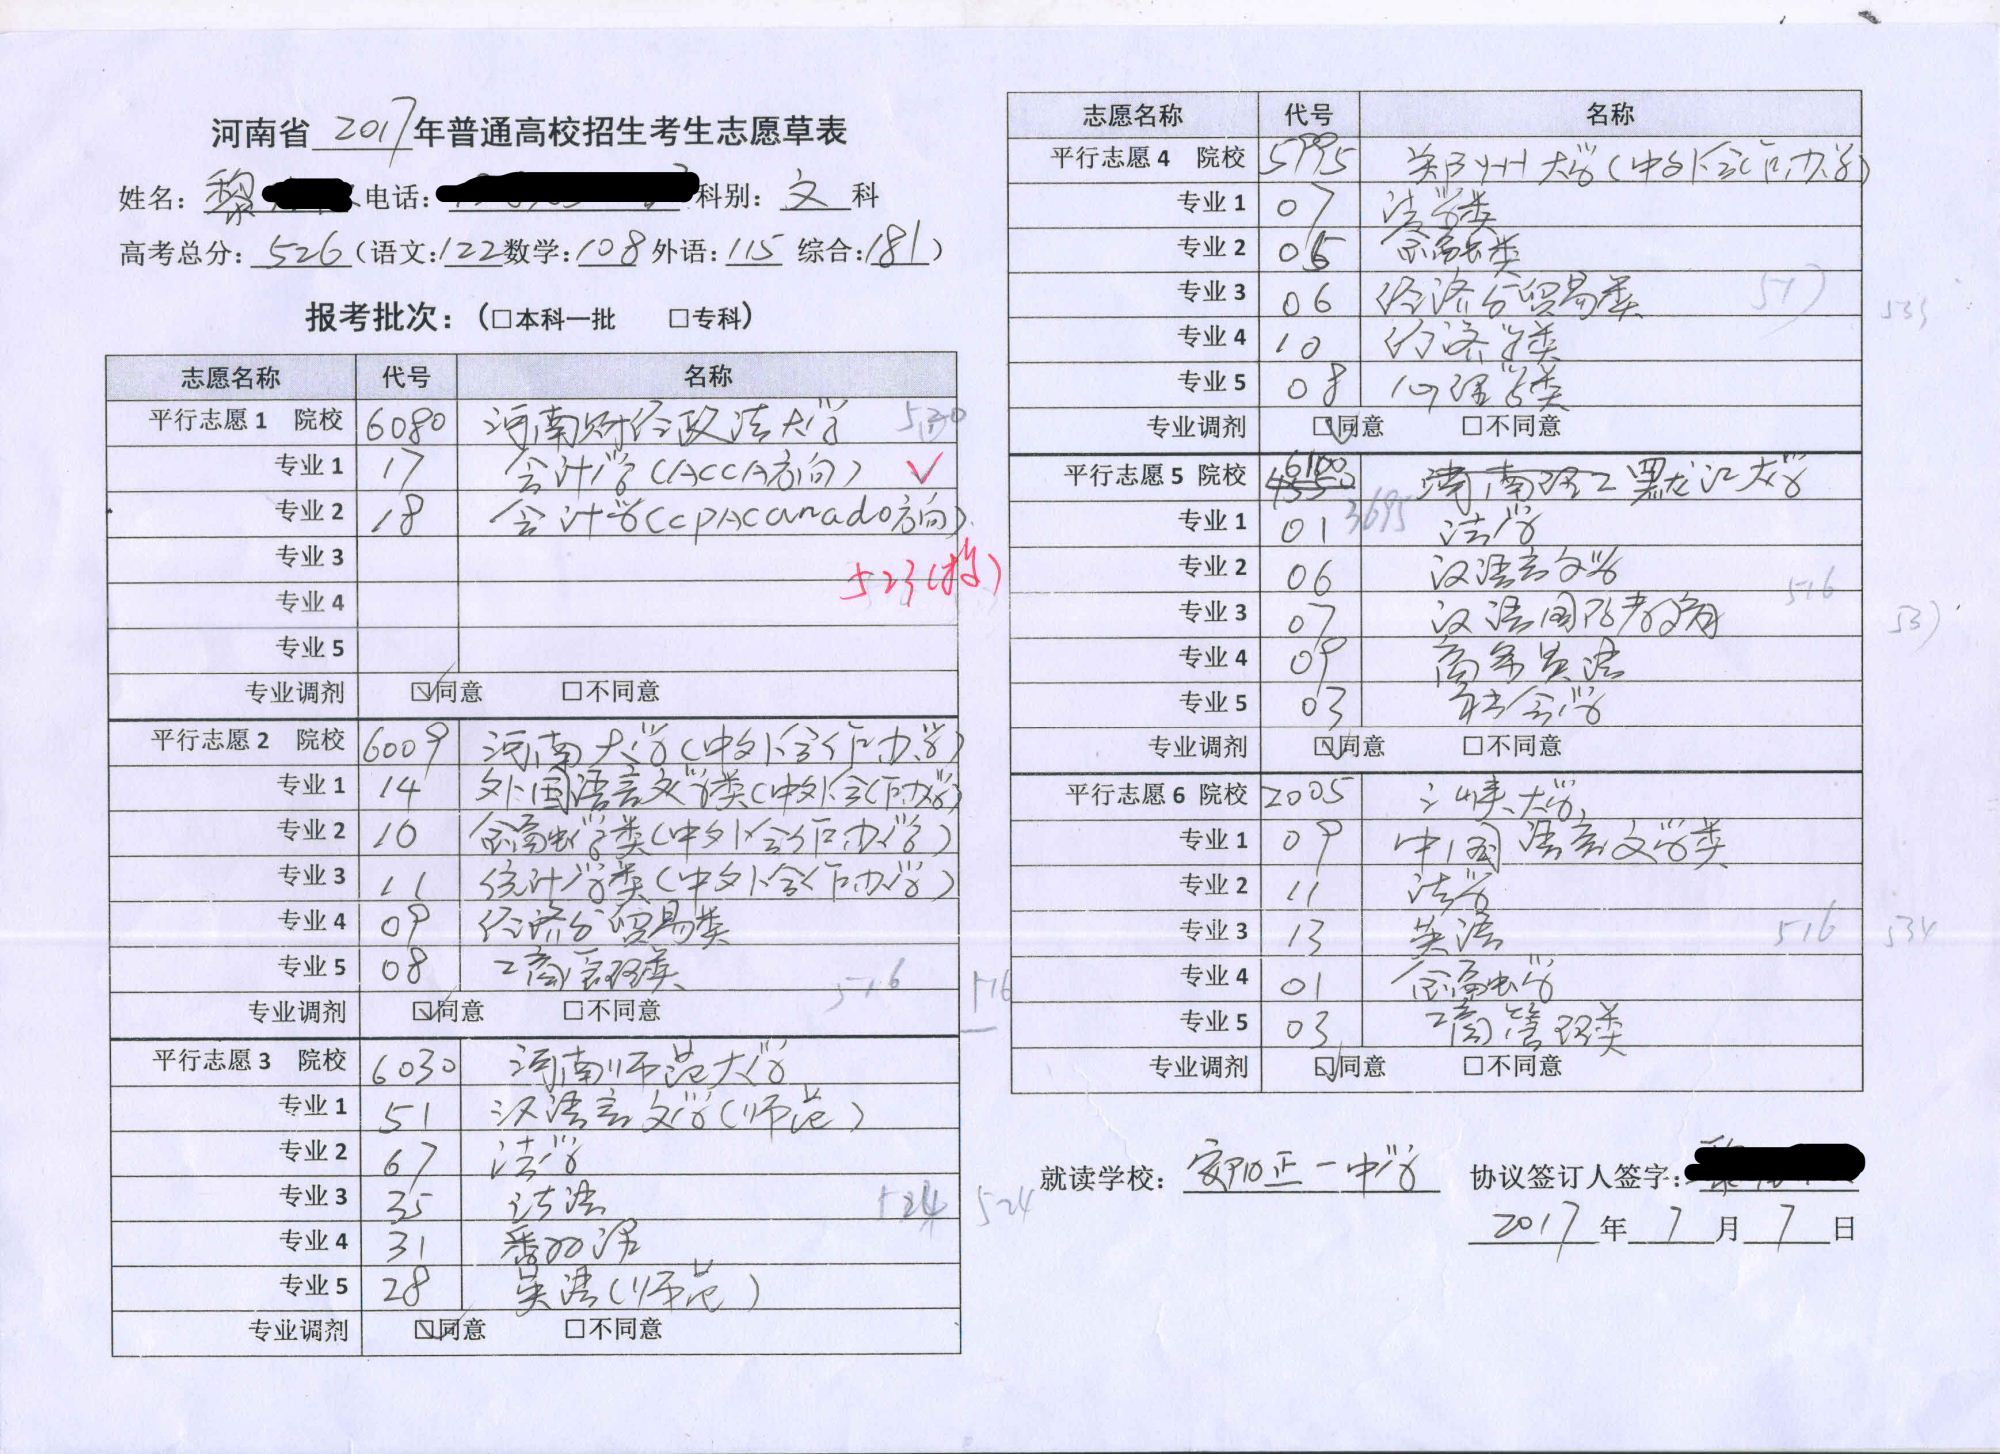 河南省 2017 年普通高校招生考生志愿草表
姓名: 黎 电话: 科别: 文 科
高考总分: 526 (语文:122 数学:108 外语:115 综合:181)
报考批次: (□本科一批 □专科)
志愿名称 代号 名称
平行志愿 1 院校 6080 河南财经政法大学 530
专业 1 17 会计学(ACCA方向) ✓
专业 2 18 会计学(cpAcanado方向)
专业 3
523(投)
专业 4
专业 5
专业调剂 ☑同意 □不同意
平行志愿 2 院校 6009 河南大学(中外合作办学)
专业 1 14 外国语言文学类(中外合作办学)
专业 2 10 金融学类(中外合作办学)
专业 3 11 统计学类(中外合作办学)
专业 4 09 经济与贸易类
专业 5 08 工商管理类
516 516
专业调剂 ☑同意 □不同意
平行志愿 3 院校 6030 河南师范大学
专业 1 51 汉语言文学(师范)
专业 2 67 法学
专业 3 35 书法
专业 4 31 翻译
524 524
专业 5 28 英语(师范)
专业调剂 ☑同意 □不同意
志愿名称 代号 名称
平行志愿 4 院校 5995 郑州大学(中外合作办学)
专业 1 07 法学类
专业 2 05 金融类
专业 3 06 经济与贸易类 517 535
专业 4 10 经济学类
专业 5 08 心理学类
专业调剂 ☑同意 □不同意
平行志愿 5 院校 6100 河南理工 黑龙江大学
3695
专业 1 01 法学
专业 2 06 汉语言文学 516
专业 3 07 汉语国际教育 537
专业 4 09 商务英语
专业 5 03 社会学
专业调剂 ☑同意 □不同意
平行志愿 6 院校 2005 三峡大学
专业 1 09 中国语言文学类
专业 2 11 法学
专业 3 13 英语 516 534
专业 4 01 金融学
专业 5 03 工商管理类
专业调剂 ☑同意 □不同意
就读学校: 安阳正一中学 协议签订人签字: 黎
2017 年 7 月 7 日